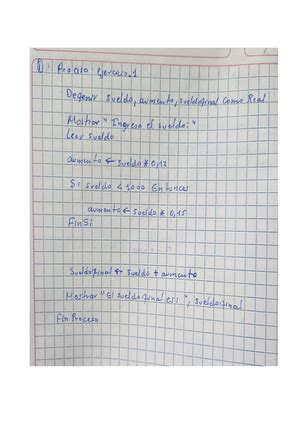 ① Proceso ejercicio_1
Definir sueldo, aumento, sueldofinal como Real
Mostrar "Ingrese el sueldo: "
Leer sueldo
aumento ← sueldo * 0,12
Si sueldo < 1000 Entonces
aumento ← sueldo * 0,15
FinSi
Sueldofinal ← sueldo + aumento
Mostrar "El sueldofinal es: ", sueldofinal
FinProceso